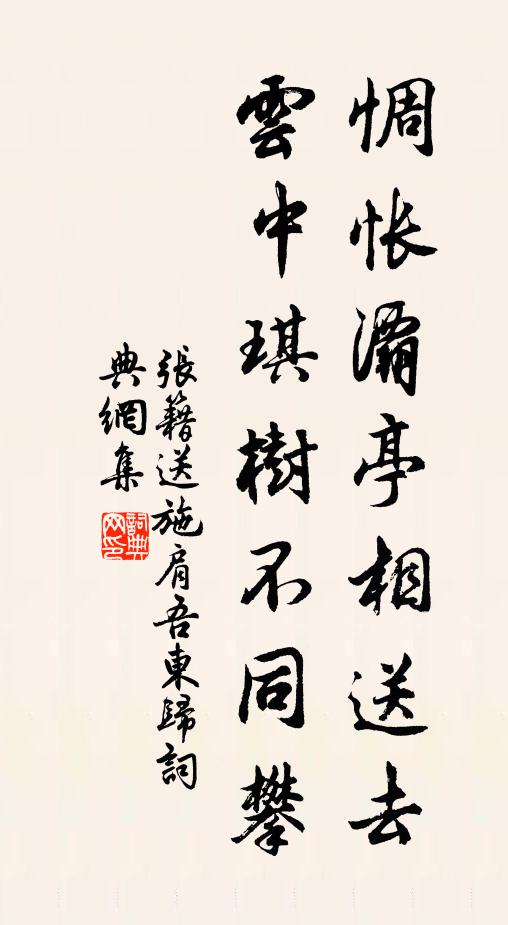 惆怅灞亭相送去
雲中琪樹不同攀
張籍送施肩吾東歸詞
典網集
詞典
网印